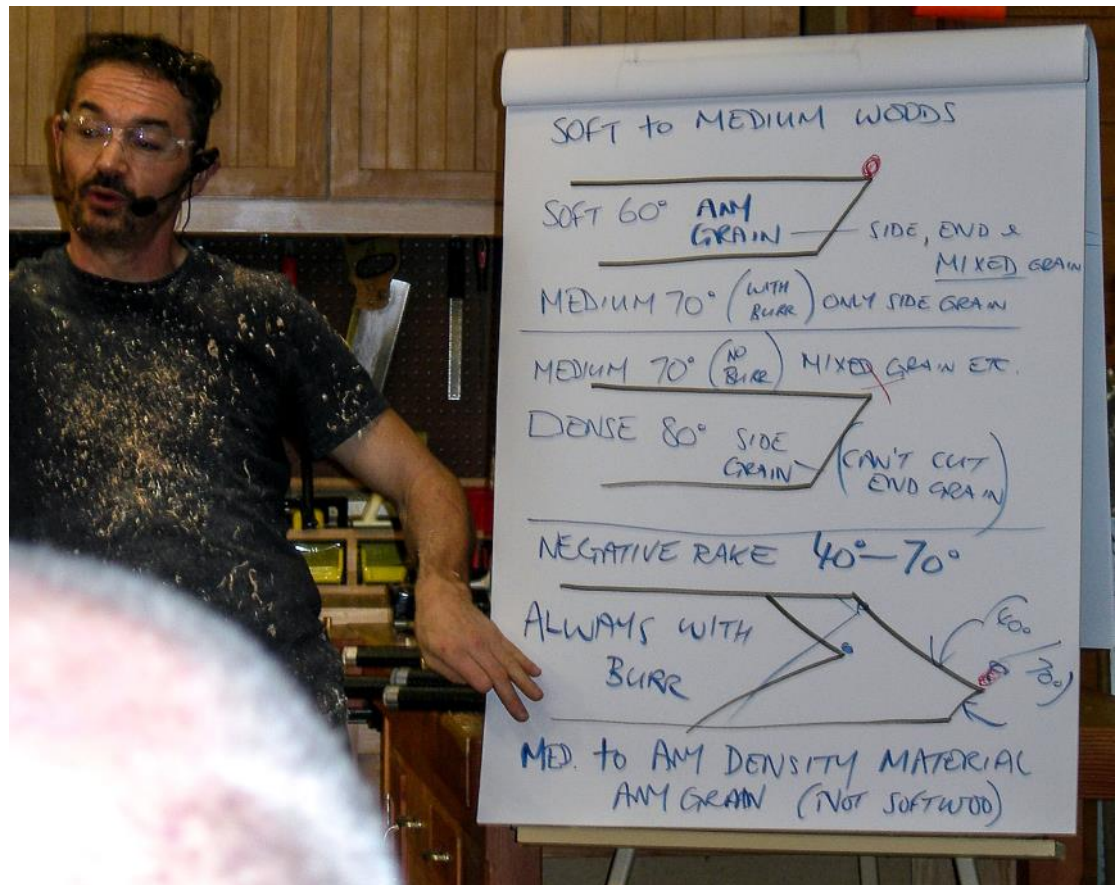 SOFT to MEDIUM WOODS
SOFT 60° ANY
GRAIN
SIDE, END &
MIXED GRAIN
MEDIUM 70° (WITH
BURR) ONLY SIDE GRAIN
MEDIUM 70° (NO
BURR) MIXED GRAIN ETC.
DENSE 80° SIDE
GRAIN
(CAN'T CUT
END GRAIN)
NEGATIVE RAKE 40°-70°
ALWAYS WITH
BURR
MED. to ANY DENSITY MATERIAL
ANY GRAIN (NOT SOFTWOOD)